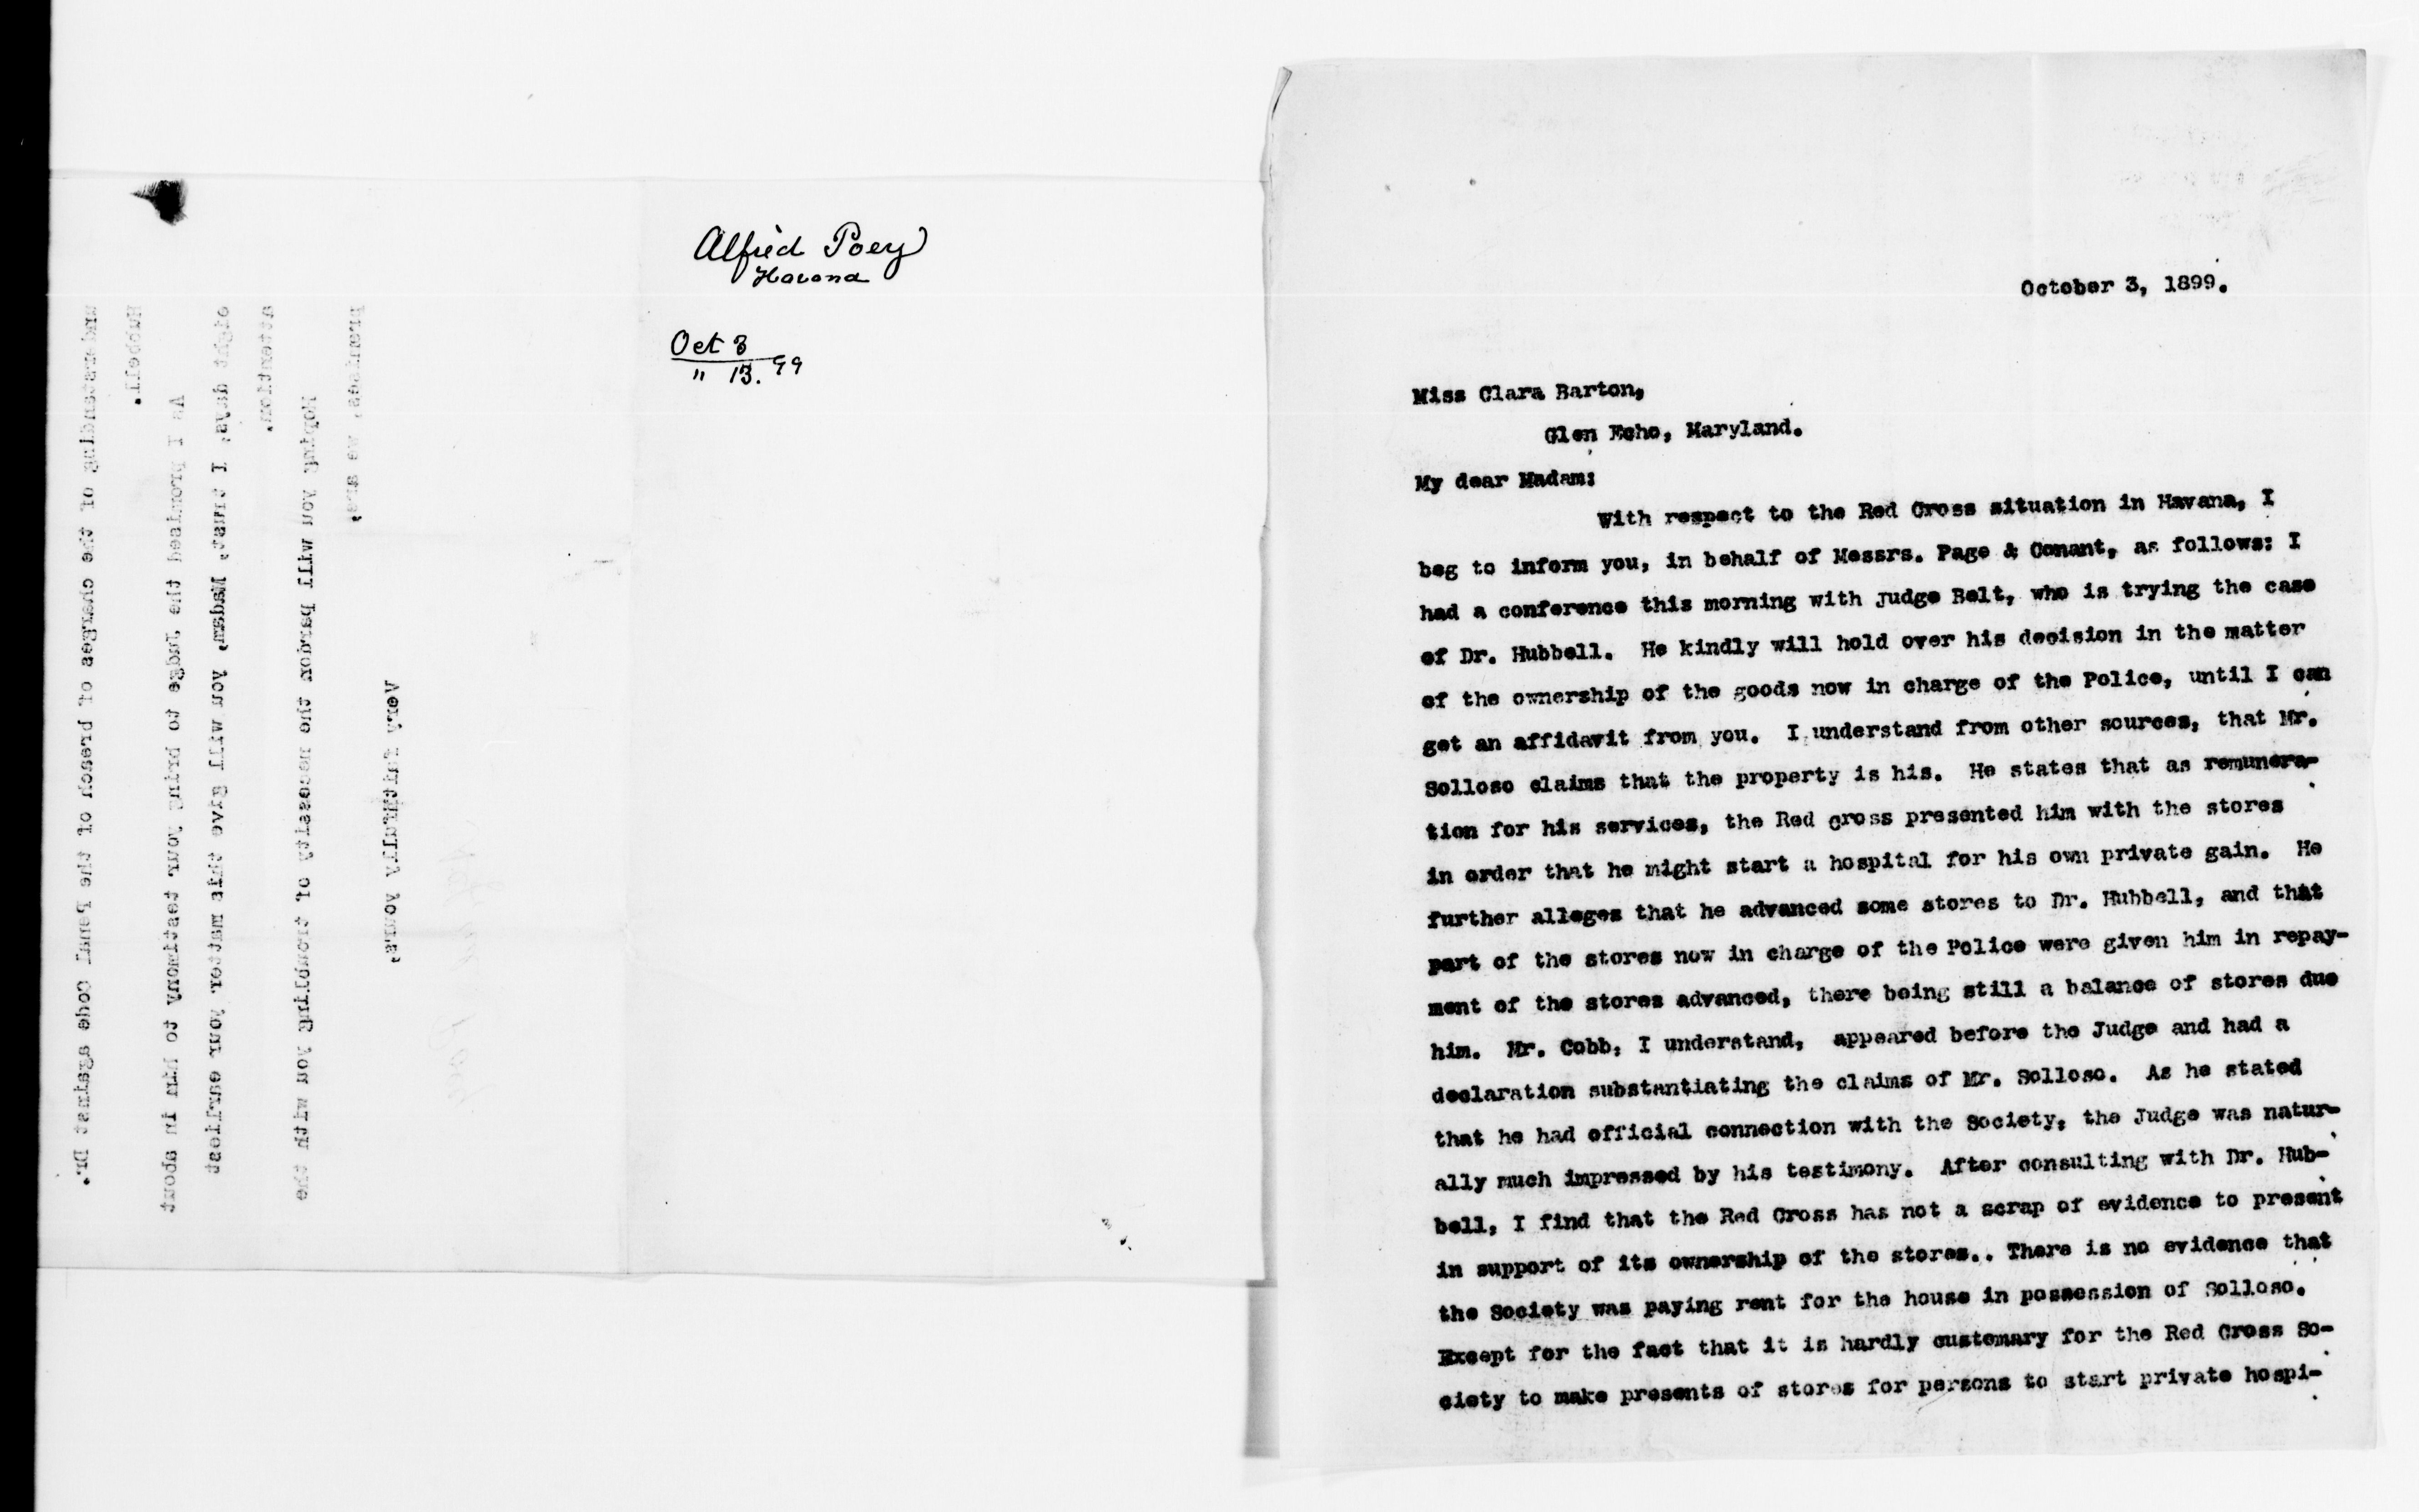 Alfred Poey
Havana
Oct 3
" 13. 99
understanding of the charges of breach of the Penal Code against Dr.
Hubbell.
As I promised the Judge to bring your testimony to him in about
eight days, I trust, Madam, you will give this matter your earliest
attention.
Hoping you will pardon the necessity of troubling you with the
premises, we are,
Very faithfully yours,
October 3, 1899.
Miss Clara Barton,
Glen Echo, Maryland.
My dear Madam:
With respect to the Red Cross situation in Havana, I
beg to inform you, in behalf of Messrs. Page & Conant, as follows: I
had a conference this morning with Judge Belt, who is trying the case
of Dr. Hubbell. He kindly will hold over his decision in the matter
of the ownership of the goods now in charge of the Police, until I can
get an affidavit from you. I understand from other sources, that Mr.
Solloso claims that the property is his. He states that as remunera-
tion for his services, the Red Cross presented him with the stores
in order that he might start a hospital for his own private gain. He
further alleges that he advanced some stores to Dr. Hubbell, and that
part of the stores now in charge of the Police were given him in repay-
ment of the stores advanced, there being still a balance of stores due
him. Mr. Cobb, I understand, appeared before the Judge and had a
declaration substantiating the claims of Mr. Solloso. As he stated
that he had official connection with the Society, the Judge was natur-
ally much impressed by his testimony. After consulting with Dr. Hub-
bell, I find that the Red Cross has not a scrap of evidence to present
in support of its ownership of the stores.. There is no evidence that
the Society was paying rent for the house in possession of Solloso.
Except for the fact that it is hardly customary for the Red Cross So-
ciety to make presents of stores for persons to start private hospi-